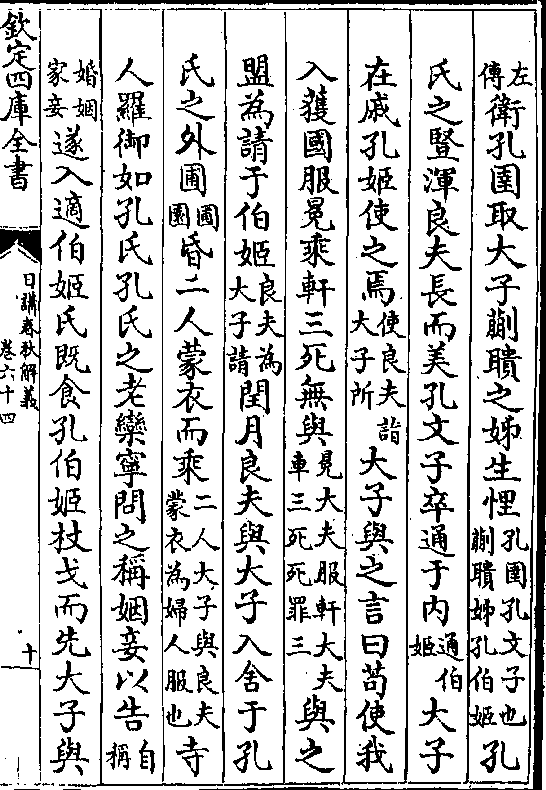 左傳衛孔圉取大子蒯聵之姊生悝孔圉孔文子也蒯聵姊孔伯姬孔
氏之豎渾良夫長而美孔文子卒通于内通伯姬大子
在戚孔姬使之焉使良夫詣大子所大子與之言曰苟使我
入獲國服冕乘軒三死無與冕大夫服軒大夫車三死死罪三與之
盟為請于伯姬良夫為大子請閏月良夫與大子入舍于孔
氏之外圃圃園昏二人蒙衣而乘二人大子與良夫蒙衣為婦人服也寺
人羅御如孔氏孔氏之老欒寧問之稱姻妾以告自稱
婚姻家妾遂入適伯姬氏既食孔伯姬杖戈而先大子與
欽定四庫全書
日講春秋解義
卷六十四
十